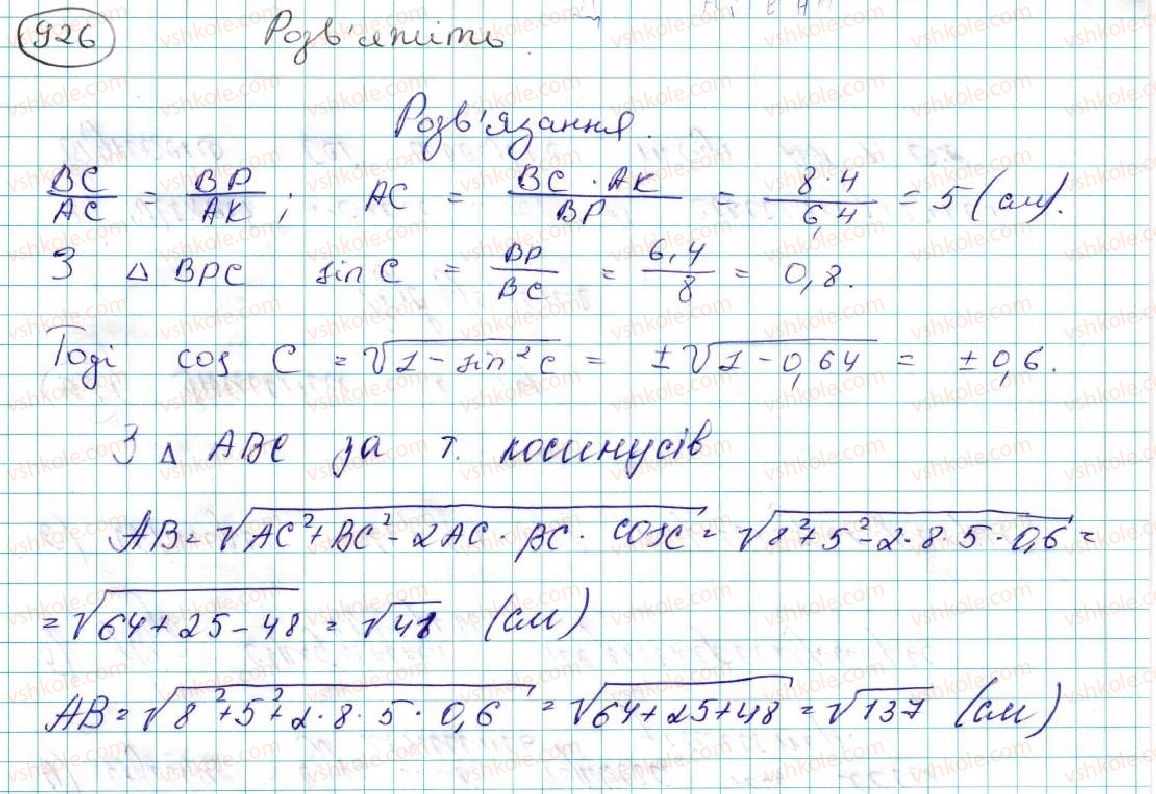 926 Розв'яжіть.
Розв'язання.
BC/AC = BP/AK; AC = BC · AK/BP = 8·4/6,4 = 5 (см).
З △ BPC sin C = BP/BC = 6,4/8 = 0,8.
Тоді cos C = √1 - sin²c = ±√1 - 0,64 = ±0,6.
З △ ABC за т. косинусів
AB = √AC² + BC² - 2AC · BC · cosC = √8² + 5² - 2·8·5·0,6 =
= √64 + 25 - 48 = √41 (см)
AB = √8² + 5² + 2·8·5·0,6 = √64 + 25 + 48 = √137 (см)